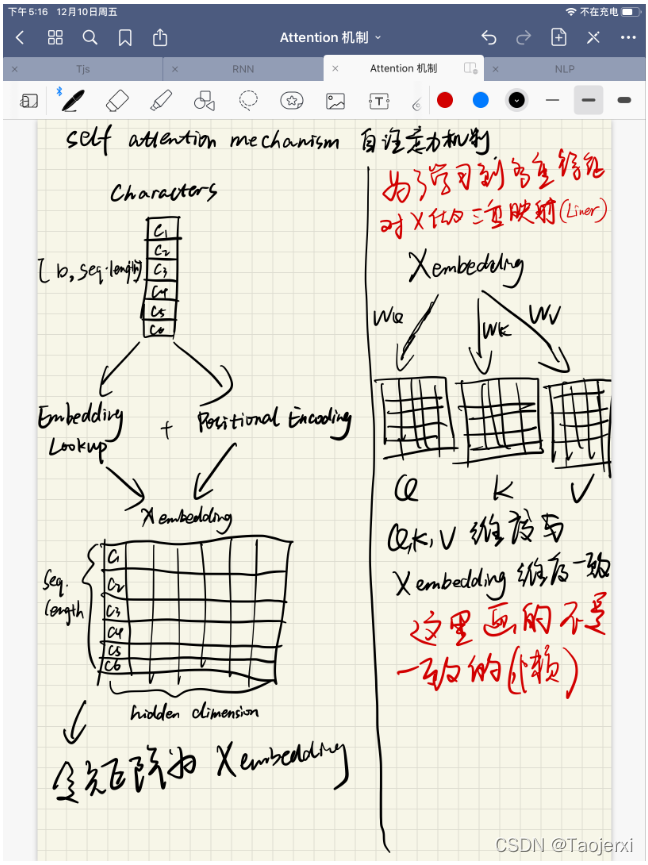 下午5:16 12月10日周五
不在充电
Attention 机制
Tjs
RNN
Attention 机制
NLP
self attention mechanism 自注意力机制
Characters
C1
C2
[b, seq.length] C3
C4
C5
C6
Embedding Lookup + Positional Encoding
X embedding
C1
C2
C3
C4
C5
C6
seq. length
hidden dimension
矩阵为 X embedding
为了学习到多重
对 X 做三重映射(Liner)
X embedding
WQ
WK
WV
Q K V
Q,K,V 维度与
X embedding 维度一致
这里画的不是
一致的(懒)
CSDN @Taojerxi